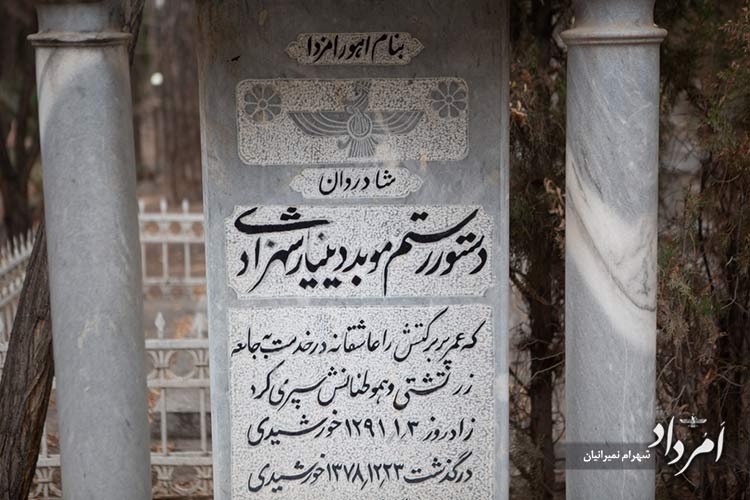 بنام اهورامزدا
شادروان
دستور رستم موبد دینیار شهزادی
که عمر پر برکتش را عاشقانه در خدمت به جامعه
زرتشتی و هموطنانش سپری کرد
زادروز ۱۲۹۱٫۱٫۳ خورشیدی
درگذشت ۱۳۷۸٫۱۲٫۲۳ خورشیدی
اَمرداد
شهرام نمیرانیان